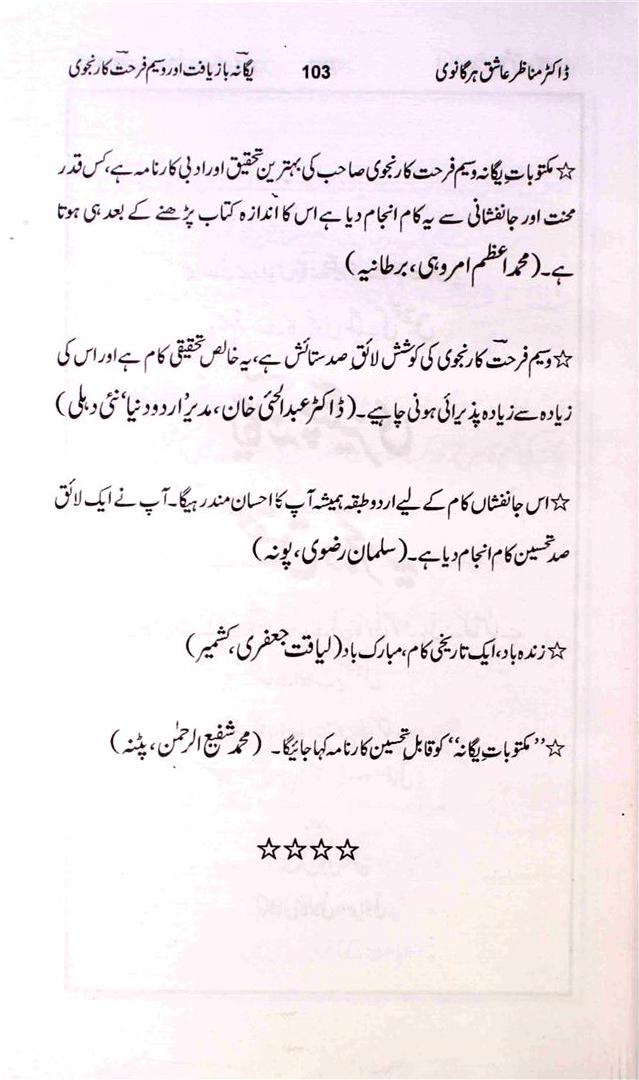 ڈاکٹر مناظر عاشق ہرگانوی 103 یگانہ بازیافت اور وسیم فرحتؔ کارنجوی
☆ مکتوباتِ یگانہ وسیم فرحت کارنجوی صاحب کی بہترین تحقیق اور ادبی کارنامہ ہے، کس قدر
محنت اور جانفشانی سے یہ کام انجام دیا ہے اس کا اندازہ کتاب پڑھنے کے بعد ہی ہوتا
ہے۔ (محمد اعظم امروہی، برطانیہ)
☆ وسیم فرحتؔ کارنجوی کی کوشش لائقِ صد ستائش ہے، یہ خالص تحقیقی کام ہے اور اس کی
زیادہ سے زیادہ پذیرائی ہونی چاہیے۔ (ڈاکٹر عبدالحئی خان، مدیر ’اردو دنیا‘ نئی دہلی)
☆ اس جانفشاں کام کے لیے اردو طبقہ ہمیشہ آپ کا احسان مند رہیگا۔ آپ نے ایک لائق
صد تحسین کام انجام دیا ہے۔ (سلمان رضوی، پونہ)
☆ زندہ باد، ایک تاریخی کام، مبارک باد (لیاقت جعفری، کشمیر)
☆ ’’مکتوباتِ یگانہ‘‘ کو قابلِ تحسین کارنامہ کہا جائیگا۔ (محمد شفیع الرحمٰن، پٹنہ)
☆☆☆☆